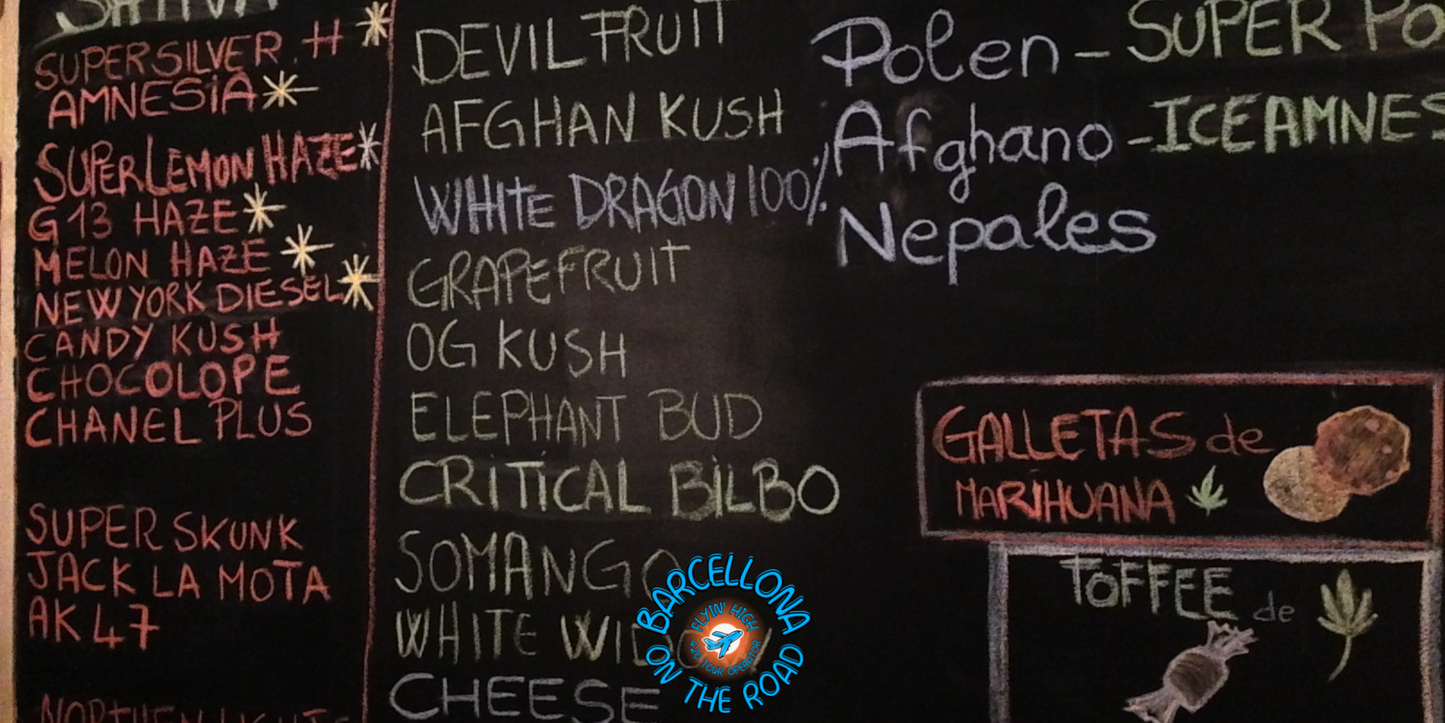 SATIVA
SUPERSILVER.H
AMNESIA
SUPER LEMON HAZE
G13 HAZE
MELON HAZE
NEW YORK DIESEL
CANDY KUSH
CHOCOLOPE
CHANEL PLUS
SUPER SKUNK
JACK LA MOTA
AK47
DEVIL FRUIT
AFGHAN KUSH
WHITE DRAGON 100%
GRAPEFRUIT
OG KUSH
ELEPHANT BUD
CRITICAL BILBO
SOMANGO
WHITE WIDO
CHEESE
Polen - SUPER PO
Afghano - ICE AMNES
Nepales
GALLETAS de
MARIHUANA
TOFFEE de
BARCELLONA
FLYIN' HIGH
420 TOUR OPERATOR
ON THE ROAD